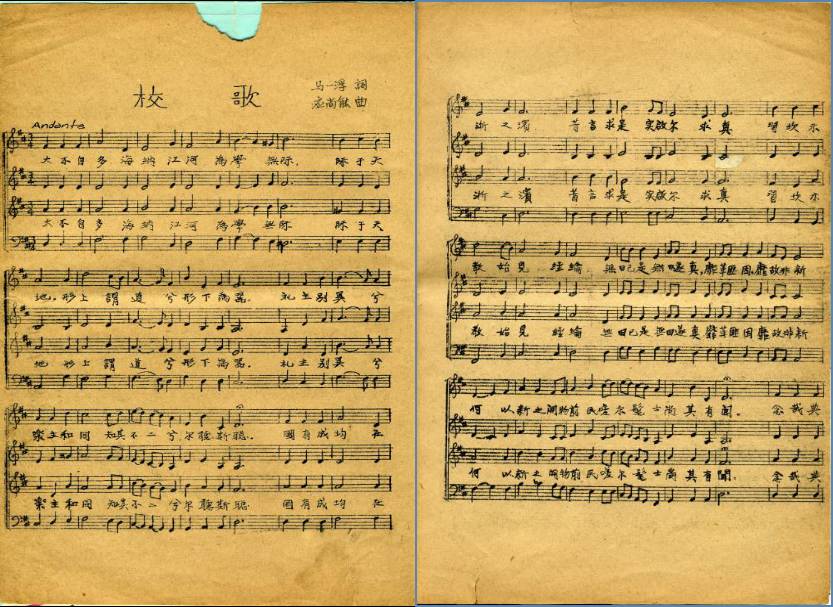 校 歌
马一浮 詞
应尚能 曲
Andante
大不自多 海纳江河 為學無际, 际于天
大不自多 海纳江河 為學無际 际于天
地。形上謂道兮形下為器. 礼主别異兮
地 形上謂道兮形下為器. 礼主别異兮
樂主和同 知其不二兮尔聽斯聪. 國有成均 在
樂主和同 知其不二兮尔聽斯聪. 國有成均 在
浙之濱 昔言求是 实啟尔求真 習坎示
浙之濱 昔言求是 实啟尔求真 習坎示
教始見經綸 無曰已是無曰遂真,靡革匪因,靡故非新
教始見經綸 無曰已是無曰遂真 靡革匪因靡故非新
何以新之開物前民嗟尔髦士尚其有聞. 念哉典
何以新之開物前民嗟尔髦士尚其有聞. 念哉典